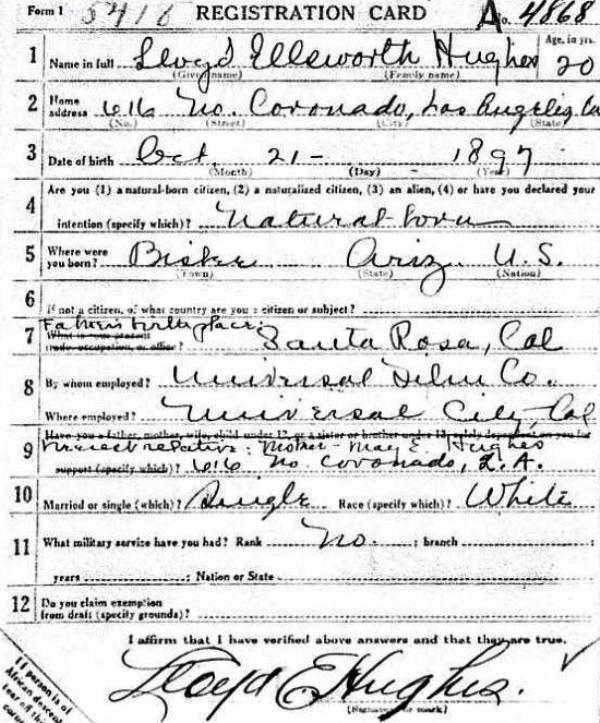 Form 1 5418 REGISTRATION CARD A No. 4868
1 Name in full Lloyd Ellsworth Hughes Age, in yrs. 20
(Given name) (Family name)
2 Home address 616 No. Coronado, Los Angeles, Ca
(No.) (Street) (City) (State)
3 Date of birth Oct. 21 - 1897
(Month) (Day) (Year)
4 Are you (1) a natural-born citizen, (2) a naturalized citizen, (3) an alien, (4) or have you declared your
intention (specify which)? Natural-born
5 Where were you born? Bisbee Ariz. U.S.
(Town) (State) (Nation)
6 If not a citizen, of what country are you a citizen or subject?
Father's birthplace:
7 What is your present trade, occupation, or office? Santa Rosa, Cal
8 By whom employed? Universal Film Co.
Where employed? Universal City, Cal
Have you a father, mother, wife, child under 12, or a sister or brother under 12, solely dependent on you for
9 Nearest relative: Mother - May E. Hughes
support (specify which)? 616 No. Coronado, L.A.
10 Married or single (which)? Single Race (specify which)? White
11 What military service have you had? Rank No. ; branch ;
years ; Nation or State
12 Do you claim exemption
from draft (specify grounds)?
I affirm that I have verified above answers and that they are true.
✓
Lloyd E Hughes.
(Signature or mark)
If person is of
African descent,
tear off this
corner